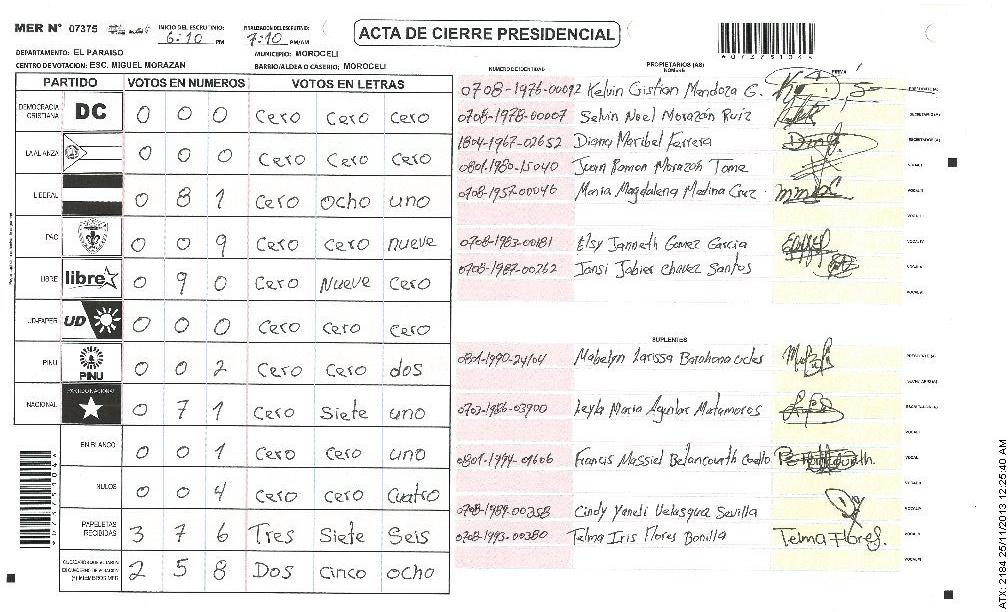 MER Nº 07375 INICIO DEL ESCRUTINIO: 6:10 PM FINALIZACION DEL ESCRUTINIO: 7:10 PM/AM
ACTA DE CIERRE PRESIDENCIAL
DEPARTAMENTO: EL PARAISO MUNICIPIO: MOROCELI
CENTRO DE VOTACION: ESC. MIGUEL MORAZAN BARRIO/ALDEA O CASERIO: MOROCELI
PARTIDO VOTOS EN NUMEROS VOTOS EN LETRAS
DEMOCRACIA CRISTIANA DC 0 0 0 Cero Cero Cero
LA ALIANZA 0 0 0 Cero Cero Cero
LIBERAL 0 8 1 Cero ocho uno
PAC 0 0 9 Cero Cero nueve
LIBRE libre 0 9 0 Cero Nueve Cero
UD-FAPER UD 0 0 0 Cero Cero Cero
PINU PINU 0 0 2 Cero Cero dos
NACIONAL PARTIDO NACIONAL 0 7 1 Cero Siete uno
EN BLANCO 0 0 1 Cero Cero uno
NULOS 0 0 4 Cero Cero Cuatro
PAPELETAS RECIBIDAS 3 7 6 Tres Siete Seis
2 5 8 Dos Cinco ocho
NUMERO DE IDENTIDAD PROPIETARIOS (AS) NOMBRE FIRMA
0708-1976-00092 Kelvin Cristian Mendoza G. PRESIDENTE (A)
0708-1978-00007 Selvin Noel Morazán Ruiz SECRETARIO (A)
1804-1967-02652 Diana Maribel Ferrera ESCRUTADOR (A)
0801-1980-15040 Juan Ramon Morazán Tome VOCAL I
0708-1957-00046 Maria Magdalena Medina Cruz VOCAL II
VOCAL III
0708-1983-00181 Elsy Janneth Gomez Garcia VOCAL IV
0708-1987-00262 Jansi Jabier Chavez Santos VOCAL V
VOCAL VI
SUPLENTES
0801-1990-24104 Mabelyn Larissa Barahona PRESIDENTE (A)
SECRETARIO (A)
0703-1986-03900 Leyla Maria Aguilar Matamoros ESCRUTADOR (A)
VOCAL I
0801-1994-01606 Francis Massiel Betancourth Coello VOCAL II
VOCAL III
0708-1989-00258 Cindy Yaneli Velasquez Sevilla VOCAL IV
0708-1993-00380 Telma Iris Flores Bonilla Telma Flores. VOCAL V
VOCAL VI
ATX: 2184 25/11/2013 12:25:40 AM